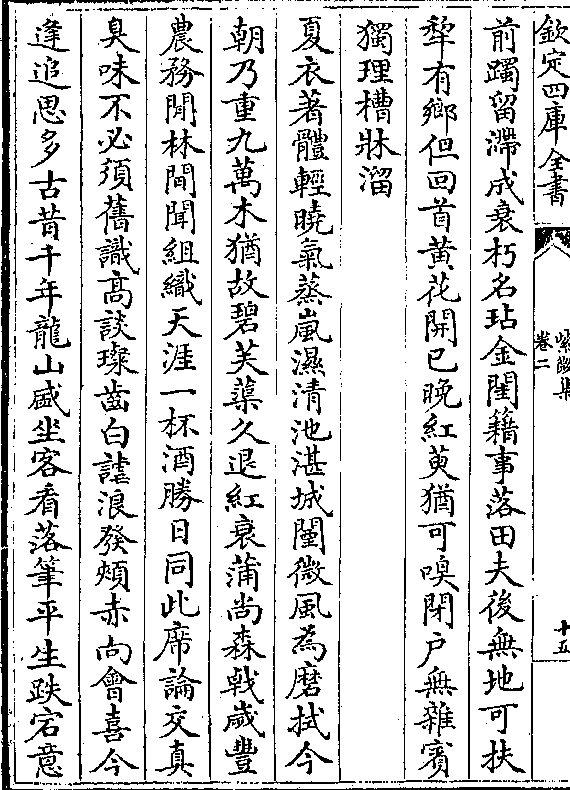 欽定四庫全書
紫微集
卷二
十五
前躅留滯成衰朽名玷金閨籍事落田夫後無地可扶
犂有鄉但回首黄花開已晚紅萸猶可嗅閉户無雜賓
獨理槽牀溜
夏衣著體輕曉氣蒸嵐濕清池湛城闉微風為磨拭今
朝乃重九萬木猶故碧芙蕖久退紅衰蒲尚森㦸嵗豐
農務閒林間聞組織天涯一杯酒勝日同此席論交真
臭味不必須舊識髙談璨齒白謔浪發頰赤向㑹喜今
逢追思多古昔千年龍山盛坐客看落筆平生跌宕意